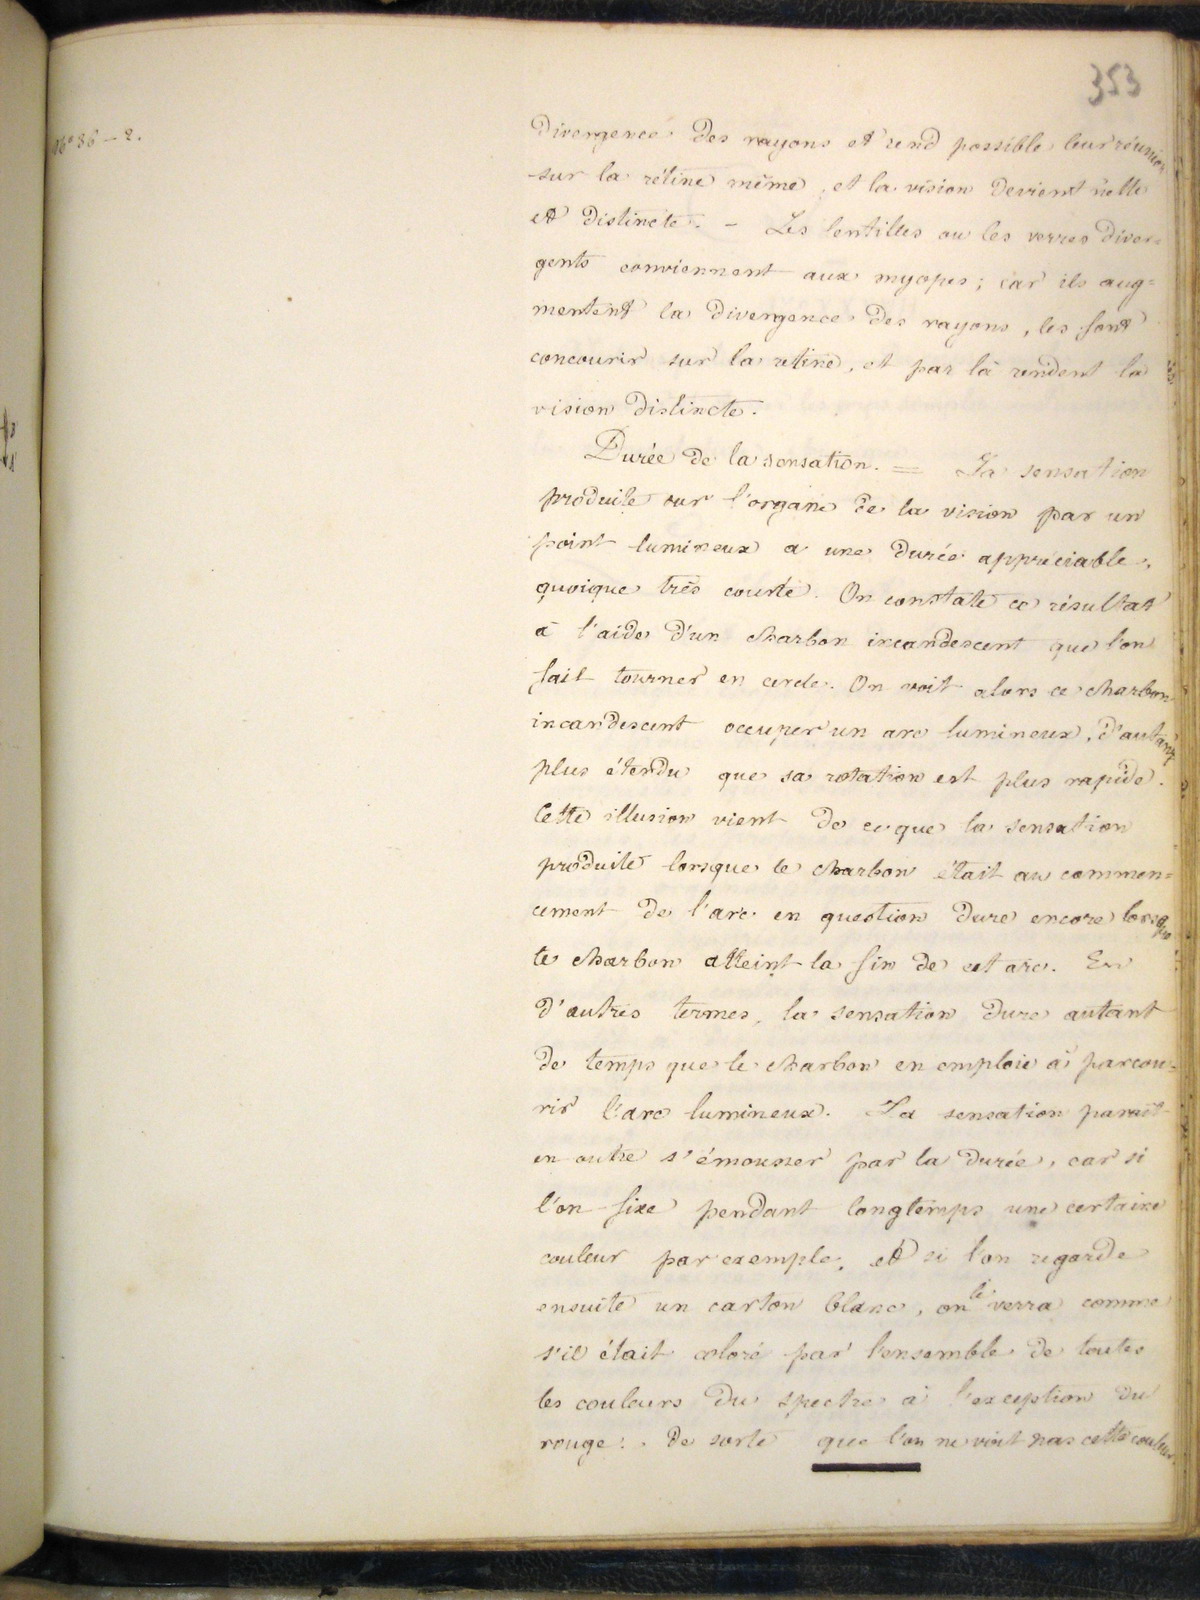 353
N° 36 - 2.
divergence des rayons et rend possible leur réunion
sur la rétine même, et la vision devient nette
et distincte. - Les lentilles ou les verres diver=
gents conviennent aux myopes; car ils aug=
mentent la divergence des rayons, les font
concourir sur la rétine, et par là rendent la
vision distincte.
Durée de la sensation. = La sensation
produite sur l'organe de la vision par un
point lumineux a une durée appréciable,
quoique très courte. On constate ce résultat
à l'aide d'un charbon incandescent que l'on
fait tourner en cercle. On voit alors ce charbon
incandescent occuper un arc lumineux, d'autant
plus étendu que sa rotation est plus rapide.
Cette illusion vient de ce que la sensation
produite lorsque le charbon était au commen=
cement de l'arc en question dure encore lorsque
le charbon atteint la fin de cet arc. En
d'autres termes, la sensation dure autant
de temps que le charbon en emploie à parcou=
rir l'arc lumineux. La sensation parait
en outre s'émousser par la durée, car si
l'on fixe pendant longtemps une certaine
couleur par exemple, et si l'on regarde
ensuite un carton blanc, on le verra comme
s'il était coloré par l'ensemble de toutes
les couleurs du spectre à l'exception du
rouge. De sorte que l'on ne voit pas cette couleur